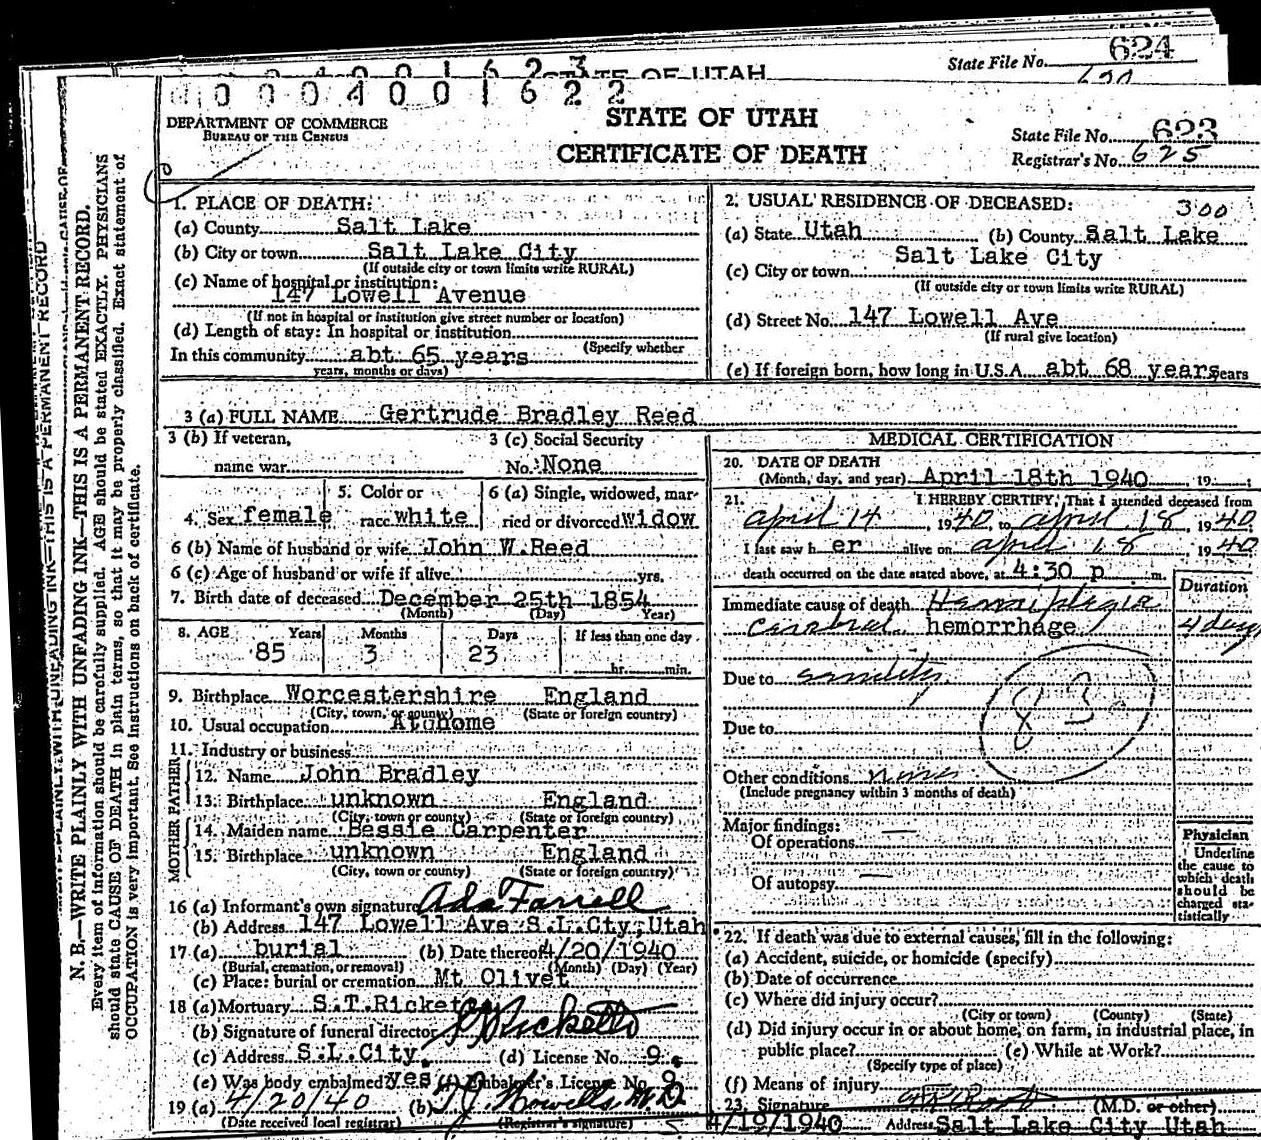 624
State File No.
0 0 0 4 0 0 1 6 2 3
STATE OF UTAH
0 0 0 4 0 0 1 6 2 2
DEPARTMENT OF COMMERCE
BUREAU OF THE CENSUS
STATE OF UTAH
CERTIFICATE OF DEATH
State File No. 623
Registrar's No. 625
N. B.—WRITE PLAINLY WITH UNFADING INK—THIS IS A PERMANENT RECORD.
Every item of information should be carefully supplied. AGE should be stated EXACTLY. PHYSICIANS
should state CAUSE OF DEATH in plain terms, so that it may be properly classified. Exact statement of
OCCUPATION is very important. See instructions on back of certificate.
1. PLACE OF DEATH:
(a) County Salt Lake
(b) City or town Salt Lake City
(If outside city or town limits write RURAL)
(c) Name of hospital or institution:
147 Lowell Avenue
(If not in hospital or institution give street number or location)
(d) Length of stay: In hospital or institution
(Specify whether
In this community abt 65 years
years, months or days)
2. USUAL RESIDENCE OF DECEASED: 300
(a) State Utah (b) County Salt Lake
(c) City or town Salt Lake City
(If outside city or town limits write RURAL)
(d) Street No. 147 Lowell Ave
(If rural give location)
(e) If foreign born, how long in U.S.A. abt 68 years years
3 (a) FULL NAME Gertrude Bradley Reed
3 (b) If veteran,
name war
3 (c) Social Security
No. None
4. Sex female
5. Color or
race white
6 (a) Single, widowed, mar-
ried or divorced widow
6 (b) Name of husband or wife John W.Reed
6 (c) Age of husband or wife if alive yrs.
7. Birth date of deceased December 25th 1854
(Month) (Day) Year)
8. AGE Years Months Days If less than one day
85 3 23 hr. min.
9. Birthplace Worcestershire England
(City, town, or county) (State or foreign country)
10. Usual occupation At home
11. Industry or business
FATHER
12. Name John Bradley
13. Birthplace unknown England
(City, town or county) (State or foreign country)
MOTHER
14. Maiden name Bessie Carpenter
15. Birthplace unknown England
(City, town or county) (State or foreign country)
16 (a) Informant's own signature Ada Farrell
(b) Address 147 Lowell Ave S.L.Cty, Utah
17 (a) burial (b) Date thereof 4/20/1940
(Burial, cremation, or removal) (Month) (Day) (Year)
(c) Place: burial or cremation Mt Olivet
18 (a) Mortuary S.T.Ricketts
(b) Signature of funeral director Ricketts
(c) Address S.L.City. (d) License No. 9.
(e) Was body embalmed? yes (f) Embalmer's License No. 9
19 (a) 4/20/40 (b) T J. Howells M D
(Date received local registrar) (Registrar's signature)
MEDICAL CERTIFICATION
20. DATE OF DEATH
(Month, day, and year) April 18th 1940, 19 ;
21. I HEREBY CERTIFY, That I attended deceased from
april 14, 1940, to april 18, 1940
I last saw h er alive on april 18, 1940
death occurred on the date stated above, at 4:30 p m.
Duration
Immediate cause of death Hemiplegia
cerebral hemorrhage 4 days
Due to senility
83
Due to
Other conditions none
(Include pregnancy within 3 months of death)
Major findings:
Of operations
Of autopsy
Physician
Underline
the cause to
which death
should be
charged sta-
tistically
22. If death was due to external causes, fill in the following:
(a) Accident, suicide, or homicide (specify)
(b) Date of occurrence
(c) Where did injury occur?
(City or town) (County) (State)
(d) Did injury occur in or about home, on farm, in industrial place, in
public place? (e) While at Work?
(Specify type of place)
(f) Means of injury
23. Signature (M.D. or other)
4/19/1940 Address Salt Lake City Utah